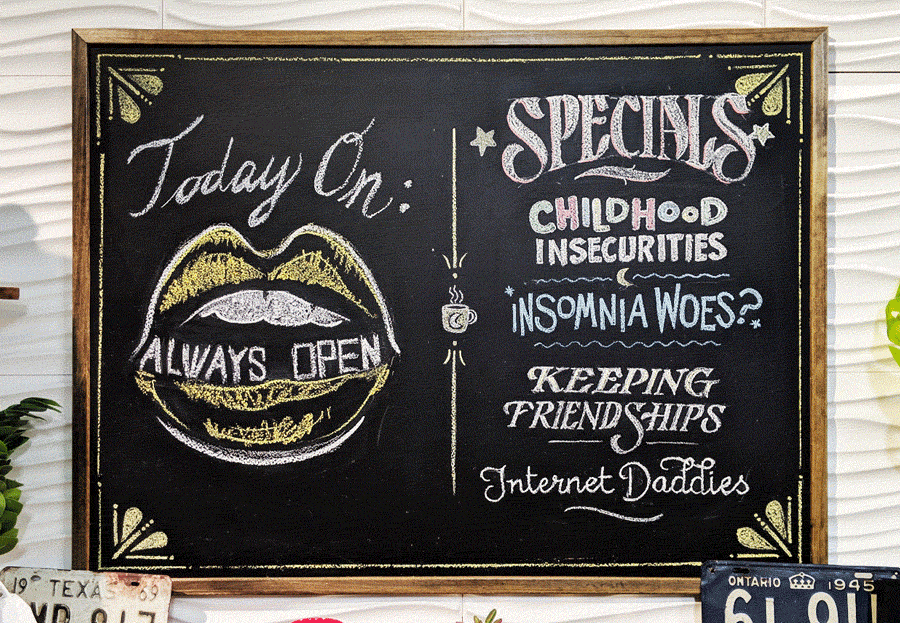 Today On:
ALWAYS OPEN
SPECIALS
CHILDHOOD
INSECURITIES
INSOMNIA WOES?
KEEPING
FRIENDSHIPS
Internet Daddies
19 TEXAS 69
ONTARIO 1945